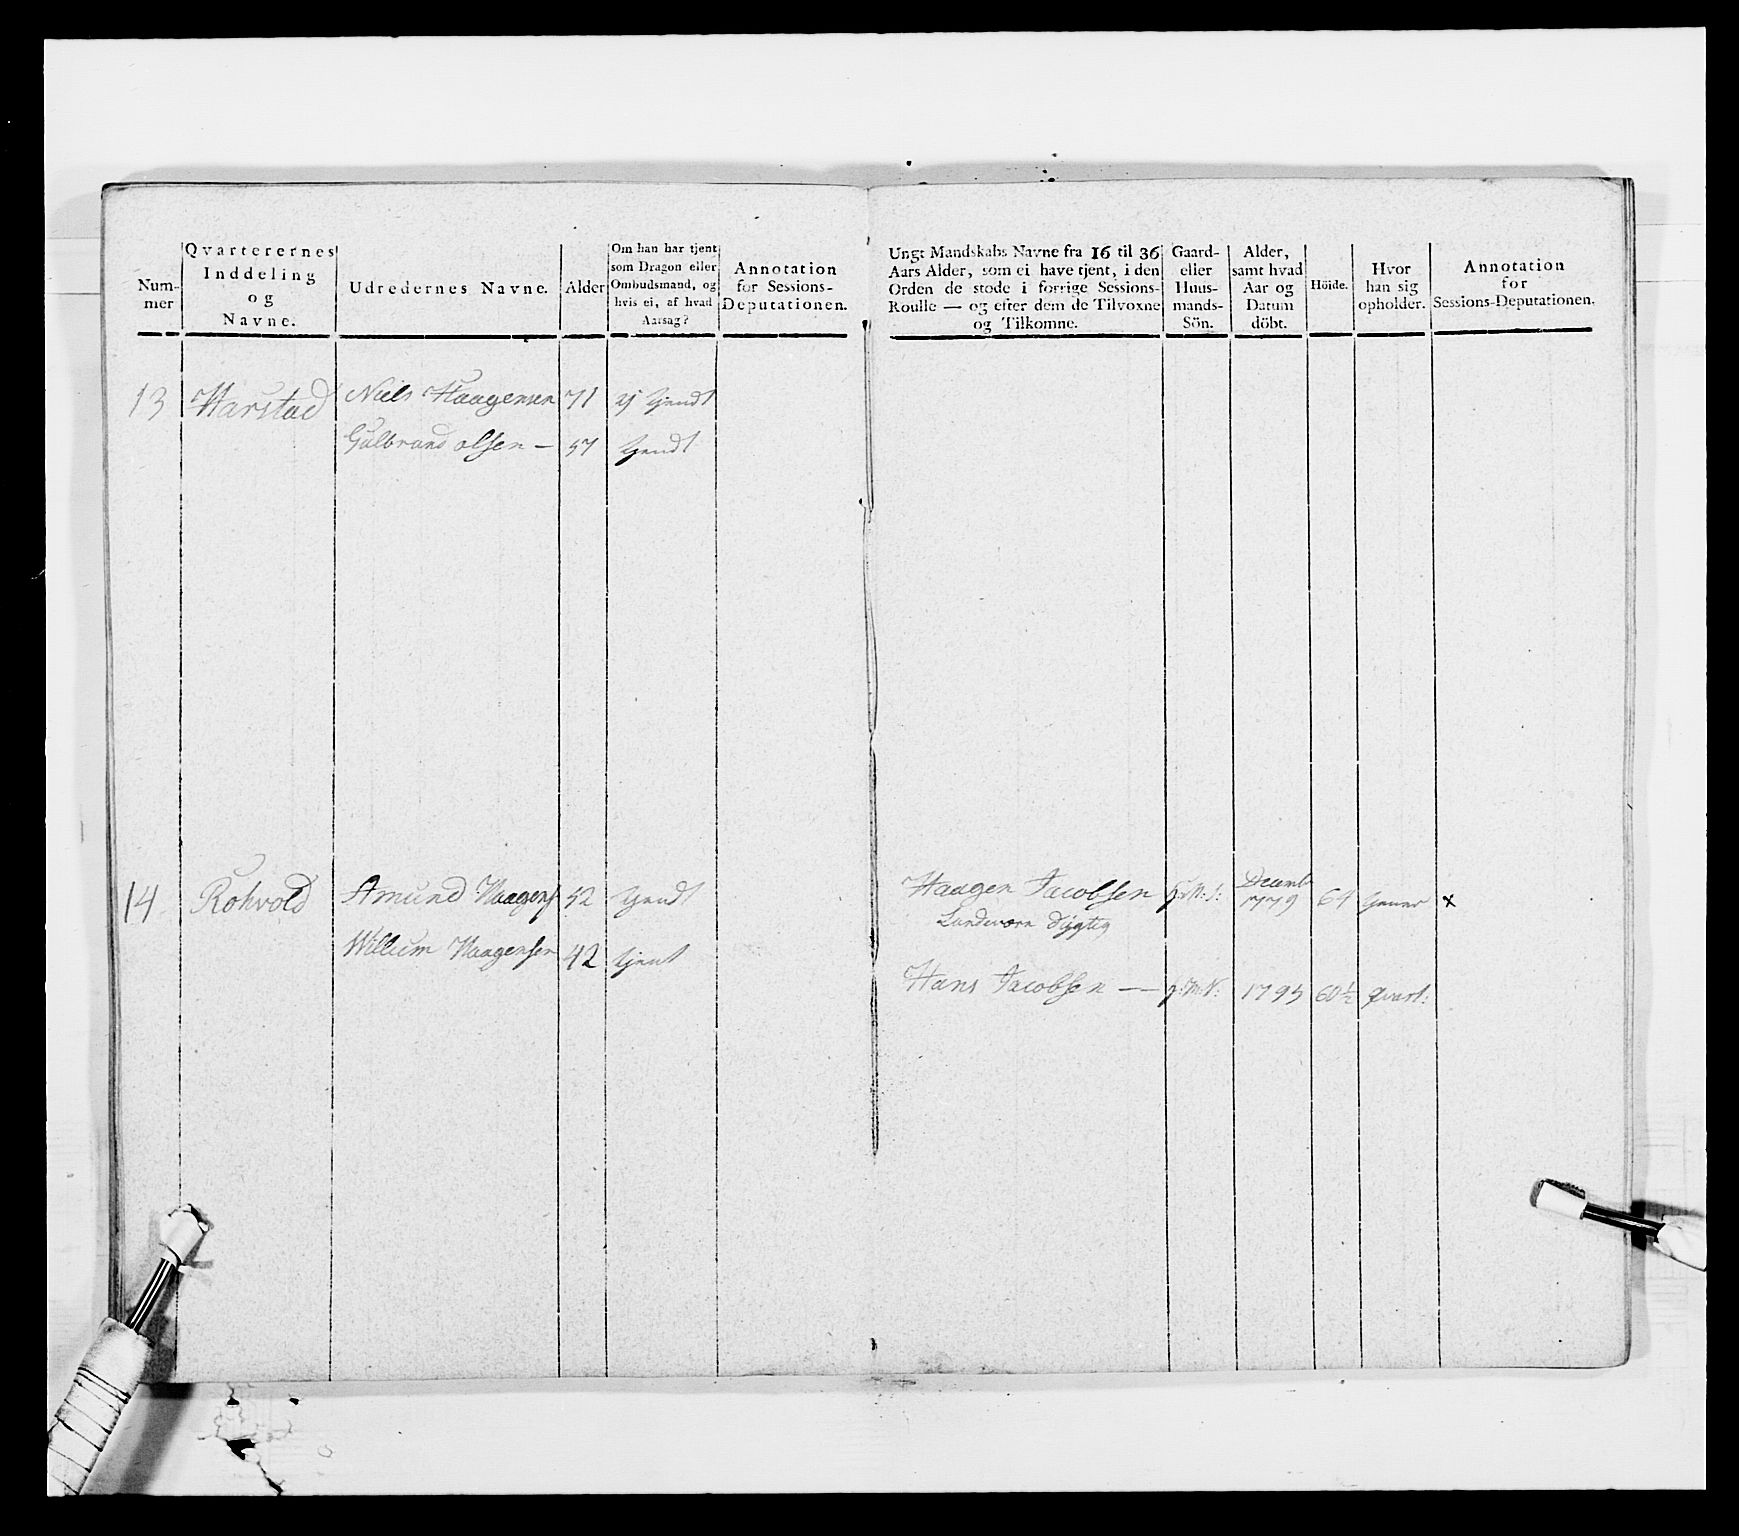 Num-
mer
Qvarterernes
Inddeling
og
Navne.
Udredernes Navne.
Alder
Om han har tjent
som Dragon eller
Ombudsmand, og
hvis ei, af hvad
Aarsag?
Annotation
for Sessions-
Deputationen.
13 Harstad Niels Haagensen 71 ej tjendt
Gulbrand olsen — 57 tjendt
14 Rohvold Amund Haagens 52 tjendt
Willum Haagensen 42 tjent
Ungt Mandskabs Navne fra 16 til 36
Aars Alder, som ei have tjent, i den
Orden de stode i forrige Sessions-
Roulle — og efter dem de Tilvoxne
og Tilkomne.
Gaard-
eller
Huus-
mands-
Sön.
Alder,
samt hvad
Aar og
Datum
döbt.
Höide.
Hvor
han sig
opholder.
Annotation
for
Sessions-Deputationen.
Haagen Jacobsen Decemb 1779 x
Landeværn dygtig
Hans Jacobsen — 1795 60½ Qvart: